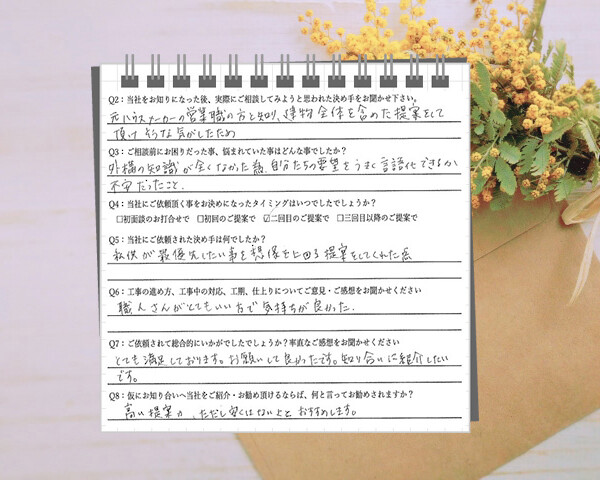 Q2：当社をお知りになった後、実際にご相談してみようと思われた決め手をお聞かせ下さい。
元ハウスメーカーの営業職の方と知り、建物全体を含めた提案をして
頂けそうな気がしたため
Q3：ご相談前にお困りだった事、悩まれていた事はどんな事でしたか？
外構の知識が全くなかった為、自分たちの要望をうまく言語化できるか
不安だったこと。
Q4：当社にご依頼頂く事をお決めになったタイミングはいつでしたでしょうか？
☐初面談のお打合せで ☐初回のご提案で ☑二回目のご提案で ☐三回目以降のご提案で
Q5：当社にご依頼された決め手は何でしたか？
私供が最優先したい事を想像を上回る提案をしてくれた為
Q6：工事の進め方、工事中の対応、工期、仕上りについてご意見・ご感想をお聞かせください
職人さんがとてもいい方で気持ちが良かった.
Q7：ご依頼されて総合的にいかがでしたでしょうか？率直なご感想をお聞かせください
とても満足しております。お願いして良かったです。知り合いに紹介したい
です。
Q8：仮にお知り合いへ当社をご紹介・お勧め頂けるならば、何と言ってお勧めされますか？
高い提案力、ただし安くはないよとおすすめします。